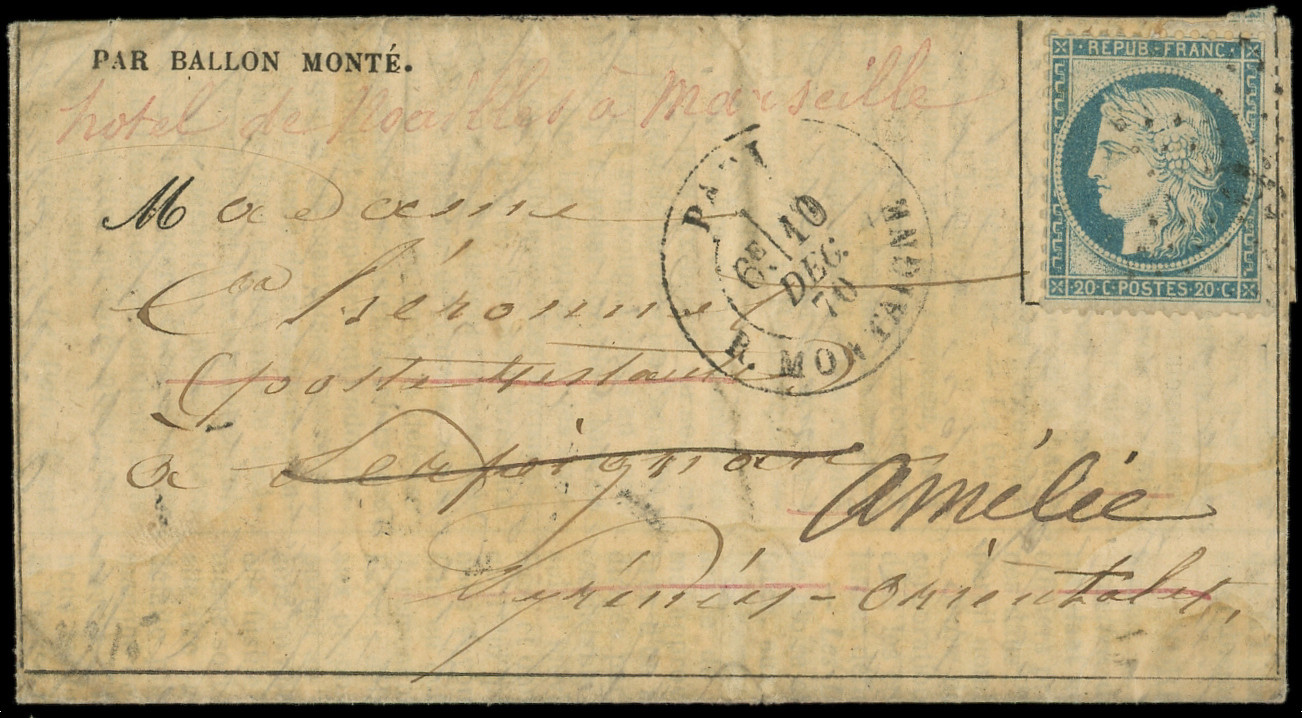 PAR BALLON MONTÉ.
hotel de Noailles à Marseille
REPUB. FRANC.
20 · C · POSTES · 20 · C
PARI
R. MONTAIGNE
6E 10
DEC.
70
Madame
poste restante
à Perpignan Amélie
Pyrénées-Orientales,